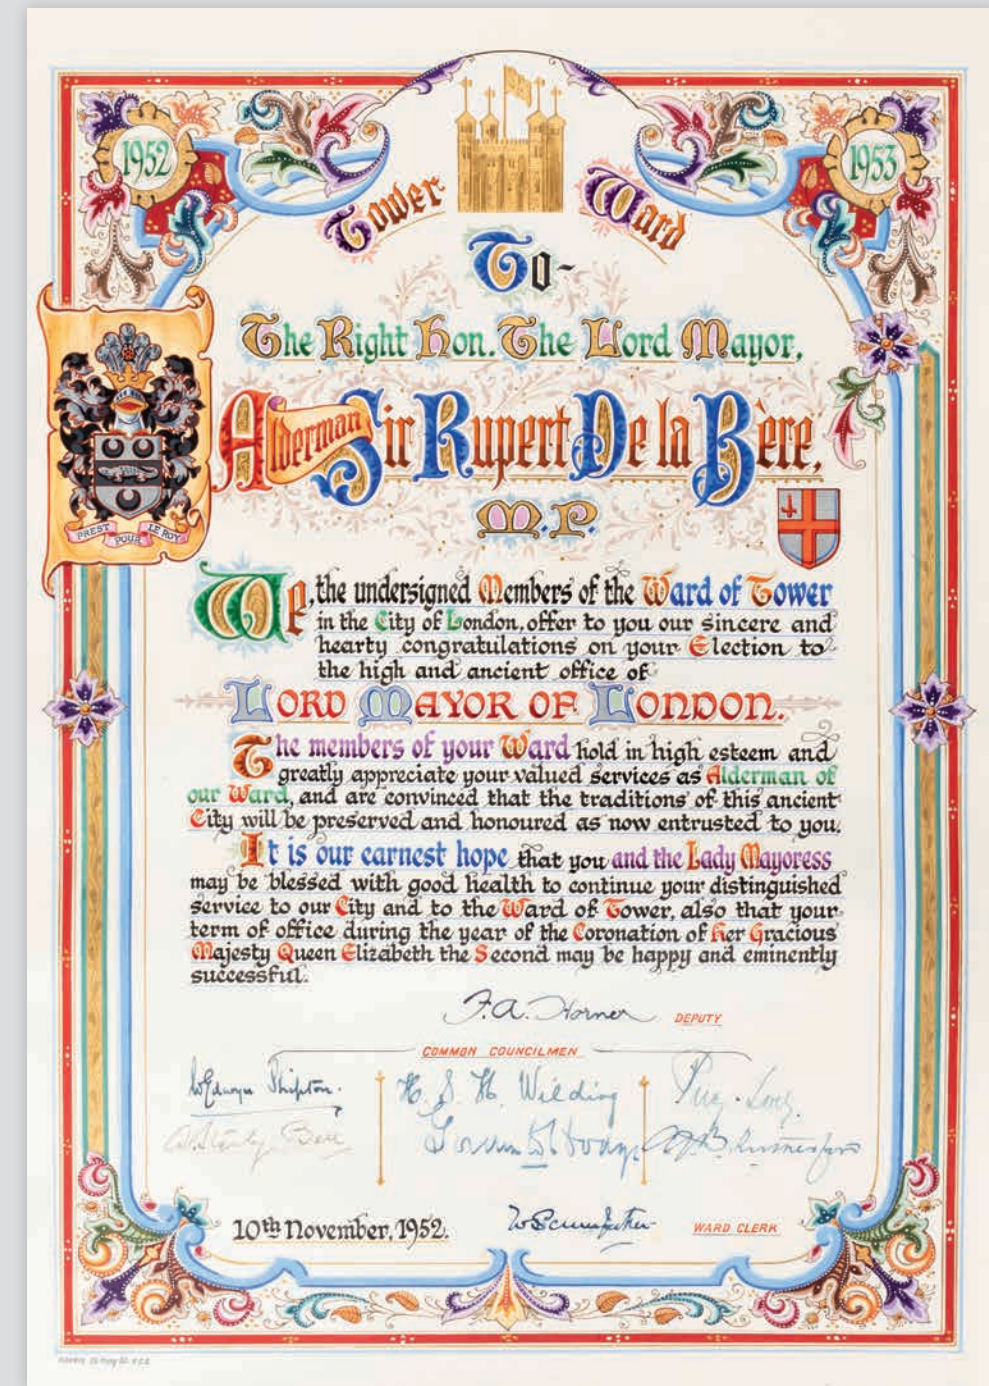 1952
1953
Tower Ward
To-
The Right Hon. The Lord Mayor,
Alderman Sir Rupert De la Bère,
M.P.
PREST POUR LE ROY
We, the undersigned Members of the Ward of Tower
in the City of London, offer to you our sincere and
hearty congratulations on your Election to
the high and ancient office of
LORD MAYOR OF LONDON.
The members of your Ward hold in high esteem and
greatly appreciate your valued services as Alderman of
our Ward, and are convinced that the traditions of this ancient
City will be preserved and honoured as now entrusted to you.
It is our earnest hope that you and the Lady Mayoress
may be blessed with good health to continue your distinguished
service to our City and to the Ward of Tower, also that your
term of office during the year of the Coronation of Her Gracious
Majesty Queen Elizabeth the Second may be happy and eminently
successful.
F. A. Horner DEPUTY
COMMON COUNCILMEN
H. S. H. Wilding
10th November, 1952.
WARD CLERK